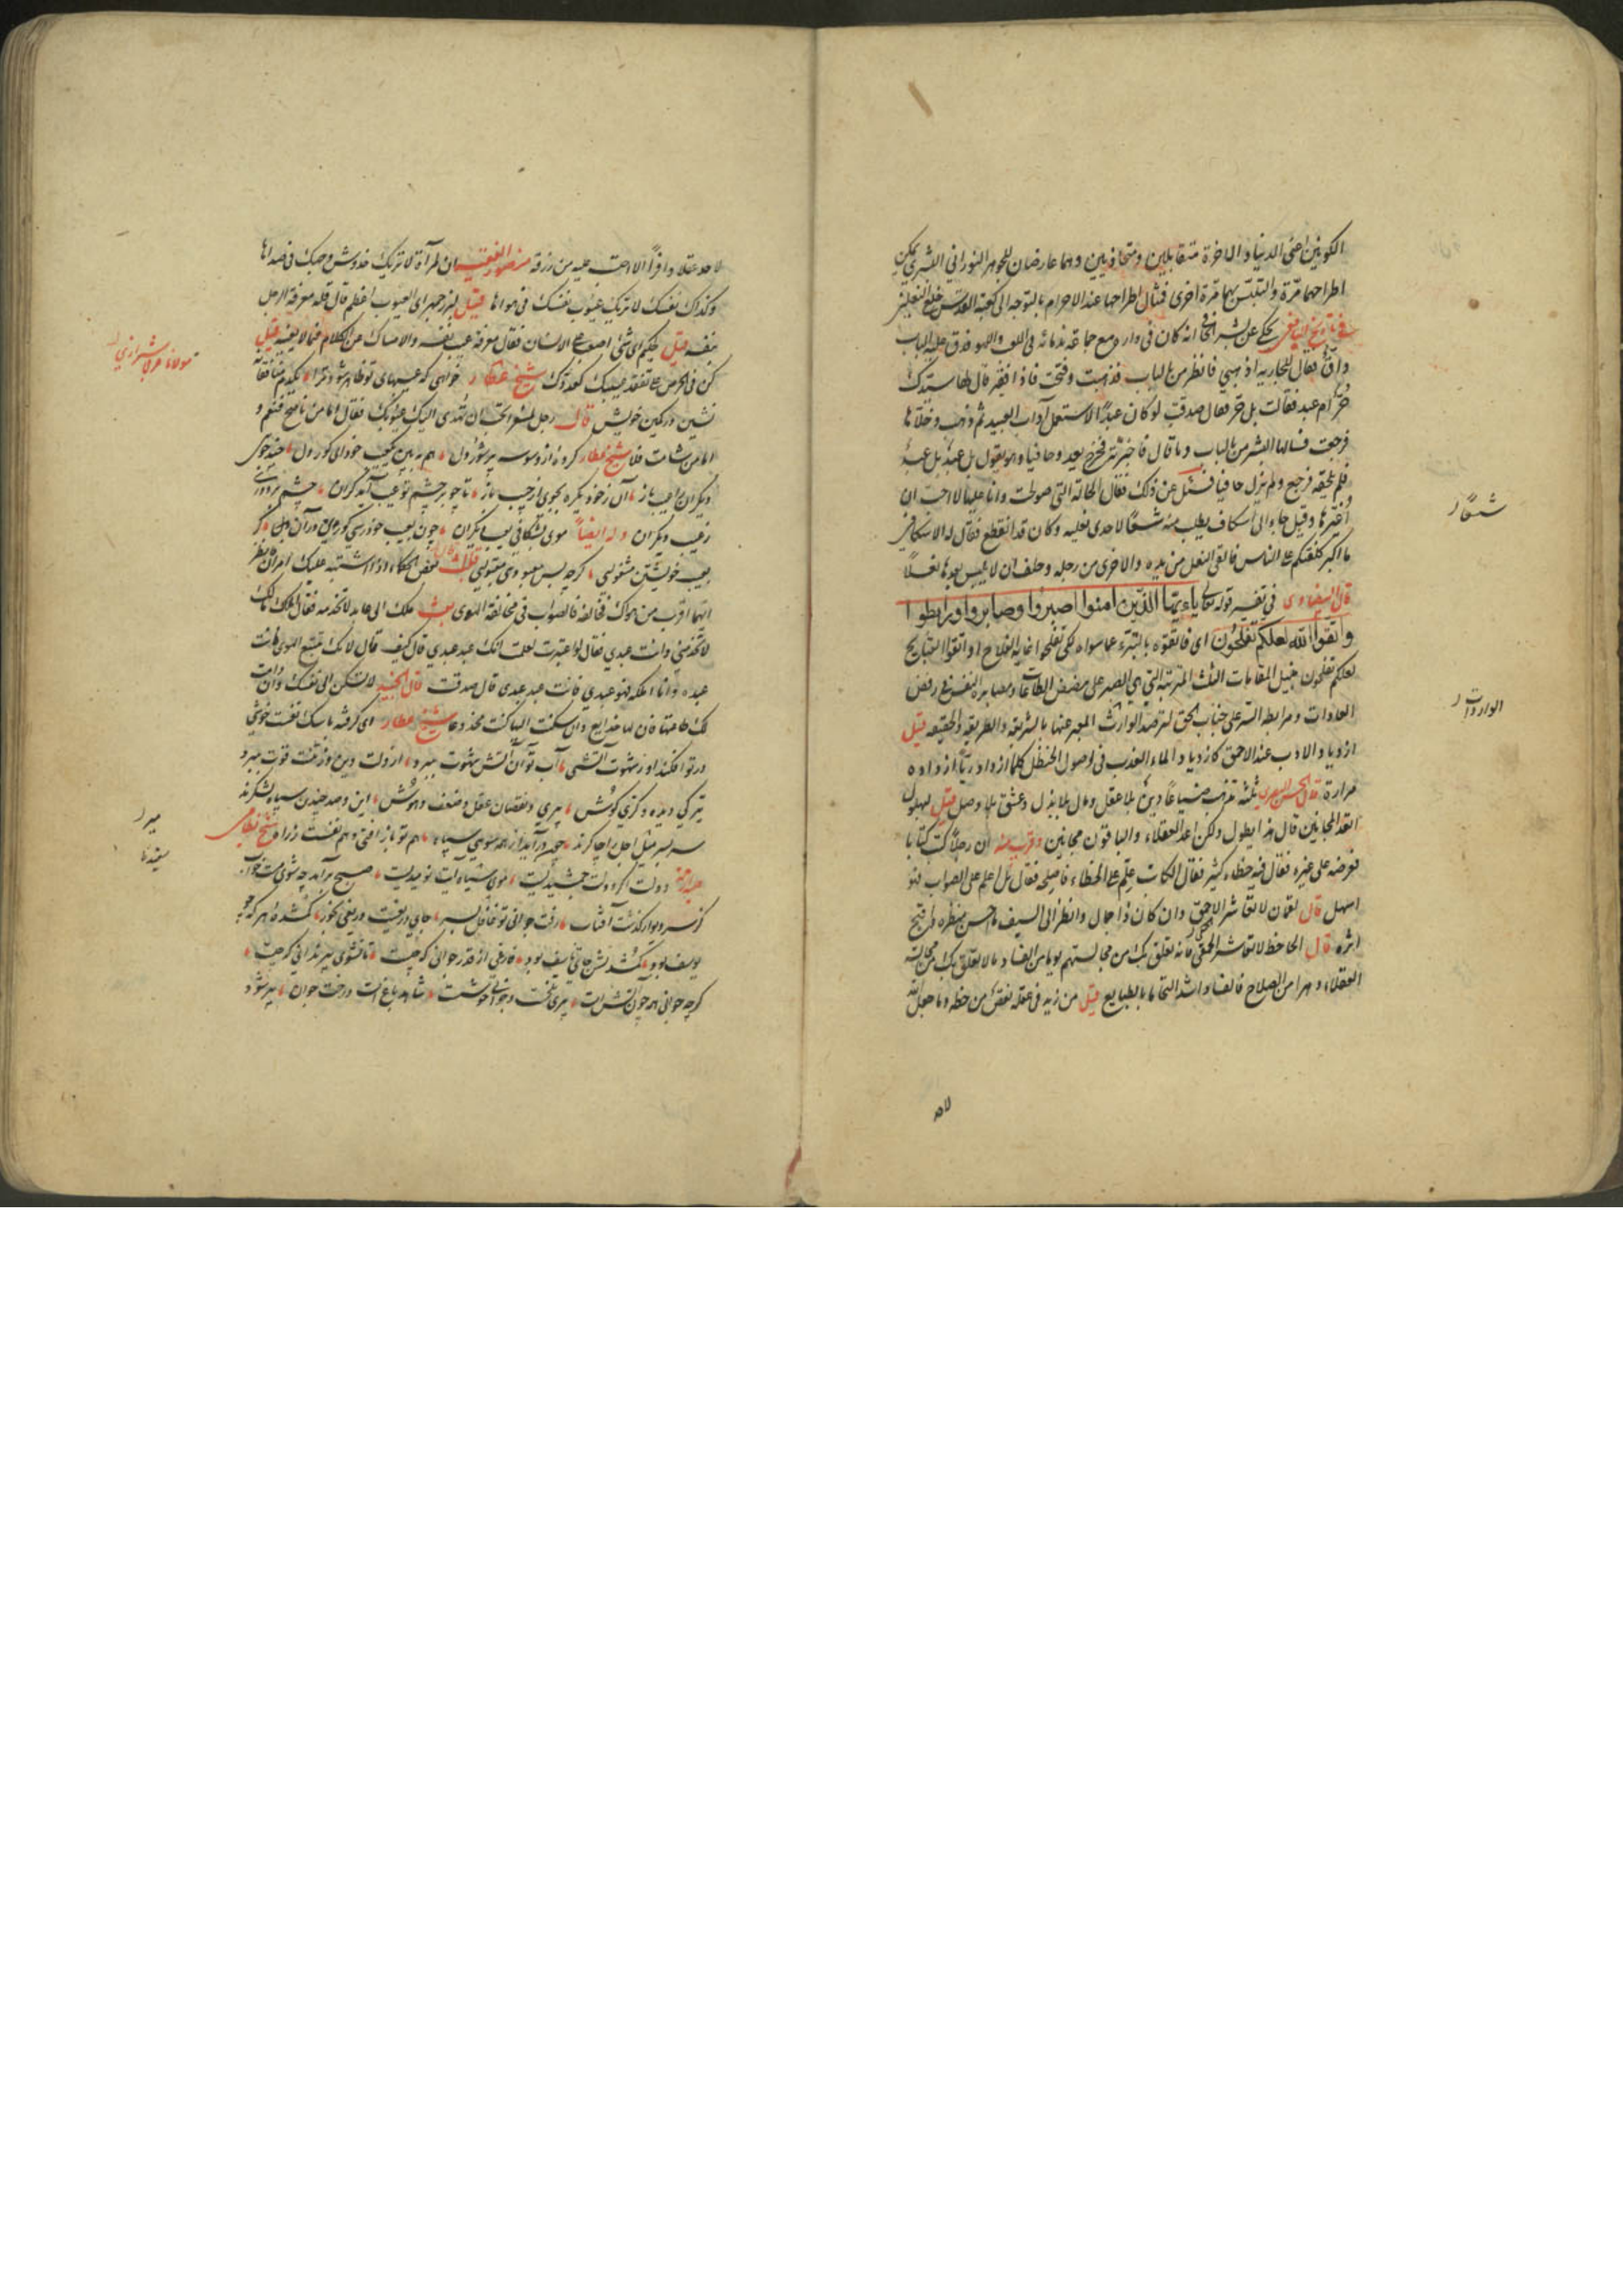 الكونين اعنى الدنيا والاخرة متقابلين ومتحاذيين وهما عارضان للجوهر النورانى البشرى يمكن
اطراحهما مرّة والتلبّس بهما مرّة اخرى فمثال اطراحهما عند الاحرام بالتوجه الى كعبة القدس خلع النعلين
فى تاريخ اليافعى يحكى عن بشر الحافى انه كان فى داره مع جماعة ندمائه فى اللعب واللهو فدق عليه الباب
داقّ فقال للجارية اذهبى فانظر من بالباب فذهبت وفتحت فاذا فقير قال لها سيّدك
حُرّ ام عبد فقالت بل حرّ فقال صدقت لو كان عبدًا لاستعمل آداب العبيد ثم ذهب وخلّاها
فرجعت فسالها البشر من بالباب وما قال فاخبرته فخرج يعدو حافيا وهو يقول بل عبدٌ بل عبدٌ
فلم يلحقه فرجع ولم يزل حافيا فسئل عن ذلك فقال الحالة التى صولحت وانا عليها لا احبّ ان
اُغيّرها وقيل جاء الى اسكاف يطلب منه شسعًا لاحدى نعليه وكان قد انقطع فقال له الاسكاف
ما اكبر كلفتكم على الناس فالقى النعل من يده والاخرى من رجله وحلف ان لا يلبس بعدها نعلاً
قال البيضاوى فى تفسير قوله تعالى ياءيها الذين امنوا اصبروا وصابروا ورابطوا
واتقوا الله لعلكم تفلحون اى فاتقوه بالتبرّء عما سواه لكى تفلحوا غاية الفلاح او اتقوا القبايح
لعلكم تفلحون بنيل المقامات الثلث المترتبة التى هى الصبر على مضض الطاعات ومصابرة النفس فى رفض
العادات ومرابطة السرّ على جناب الحق لترصد الواردات المعبر عنها بالشريعة والطريقة والحقيقة قيل
ازدياد الادب عند الاحمق كازدياد الماء العذب فى اصول الحنظل كلما ازداد ريّاً ازداده
مرارة قال الحسن البصرى ثلثة تذهب ضياعًا دين بلا عقل ومال بلا بذل وعشق بلا وصل قيل لبهلول
اتعد المجانين قال هذا يطول ولكن اعد العقلاء والباقون مجانين وقرب منه ان رجلاً كتب كتابا
فعرضه على غيره فقال فيه خطاء كثير فقال الكاتب علّم على الخطاء فاصلحه فقال بل اعلم على الصواب فهو
اسهل قال لقمان لا تعاشر الاحمق وان كان ذا جمال وانظر الى السيف ما احسن منظره واقبح
اثره قال الجاحظ لا تعاشر الحمقى فانه يعلق بك من مجالستهم يوما من الفساد ما لا يتعلق بك من مجالسة
العقلاء دهرا من الصلاح فالفساد اشد التحاما بالطبايع قيل من زيد فى عقله نقص من حظه وما جعل الله
لاحد عقلا وافراً الا احتسب عليه من رزقه منصور الفقيه ان المرآة لا تريك خدوش وجهك فى صداها
وكذاك نفسك لا تريك عيوب نفسك فى هواها قيل لبزرجمهر اى العيوب اعظم قال قلة معرفة الرجل
بنفسه قيل لحكيم اى شئ اصعب على الانسان فقال معرفة عيب نفسه والامساك عن الكلام فيما لا يعنيه قيل
كن فى الحرص على تفقد عيبك كعدوّك شيخ عطار خواهى كه عيبهاى تو ظاهر شود ترا يكدم منافقانه
نشين در كمين خويش قال رجل لمسعر اتحب ان تُهدى اليك عيوبك فقال اما من ناصح فنعم و
اما من شامت فلا شيخ عطار كرده از وسوسه پر شور دل هم ببين يك عيب خود اى كور دل چند جوى
ديگران را عيب باز آن زخود يكره بجوى از جيب باز تا چو بر چشم تو عيب آيد گران چشم بر دوزى
زعيب ديگران وله ايضاً موى بشكافى بعيب ديگران چون بعيب خود رسى كورى در آن گر
بعيب خويشتن مشغولى گرچه بس معيوبى مقبولى قال بعض الحكماء اذا اشتبه عليك امران فانظر
ايهما اقرب من هواك فخالفه فالصواب فى مخالفة الهوى بعث ملك الى عابد لا تخدمه فقال الملك مالك
لا تخدمنى وانت عبدى فقال لو اعتبرت لعلمت انك عبد عبدى قال كيف قال لانك تتبع الهوى فانت
عبده وانا املكه فهو عبدى فانت عبد عبدى قال صدقت قال الجنيد لا تسكن الى نفسك وان دامت
لك طاعتها فان لها خدايع وان سكنت اليها كنت مخدوعا شيخ عطار اى گرفته با سگ نفست خوشى
در تو افكند او زشهوت آتشى آب تو آن آتش شهوت ببرد از دلت دين وز تنت قوت ببرد
تيرگى ديده و كرى گوش پيرى و نقصان عقل و ضعف وهوش اين و صد چندين سپاه و لشكرند
سر بسر ميل اجل را چاكرند چون درآيد از همه سوى سپاه هم تو باز افتى وهم نفست زراه شيخ نظامى
عليه الرحمة دولت اگر دولت جمشيديست موى سپيد آيت نوميديست صبح برآمد چه شوى مست خواب
كز سر ديوار گذشت آفتاب رفت جوانى تو غافل بسر جاى دريغست دريغى بخور گم شده هر كه چو
يوسف بود گم شدنش جاى تاسف بود فارغى از قدر جوانى كه چيست تا نشوى پير ندانى كه چيست
گرچه جوانى همه چون آتش است پيرى تلخست و جوانى خوشست شاهد باغ است درخت جوان پير شود
شسعًا
الواردات
مولانا عرفى شيرازى
لاحد